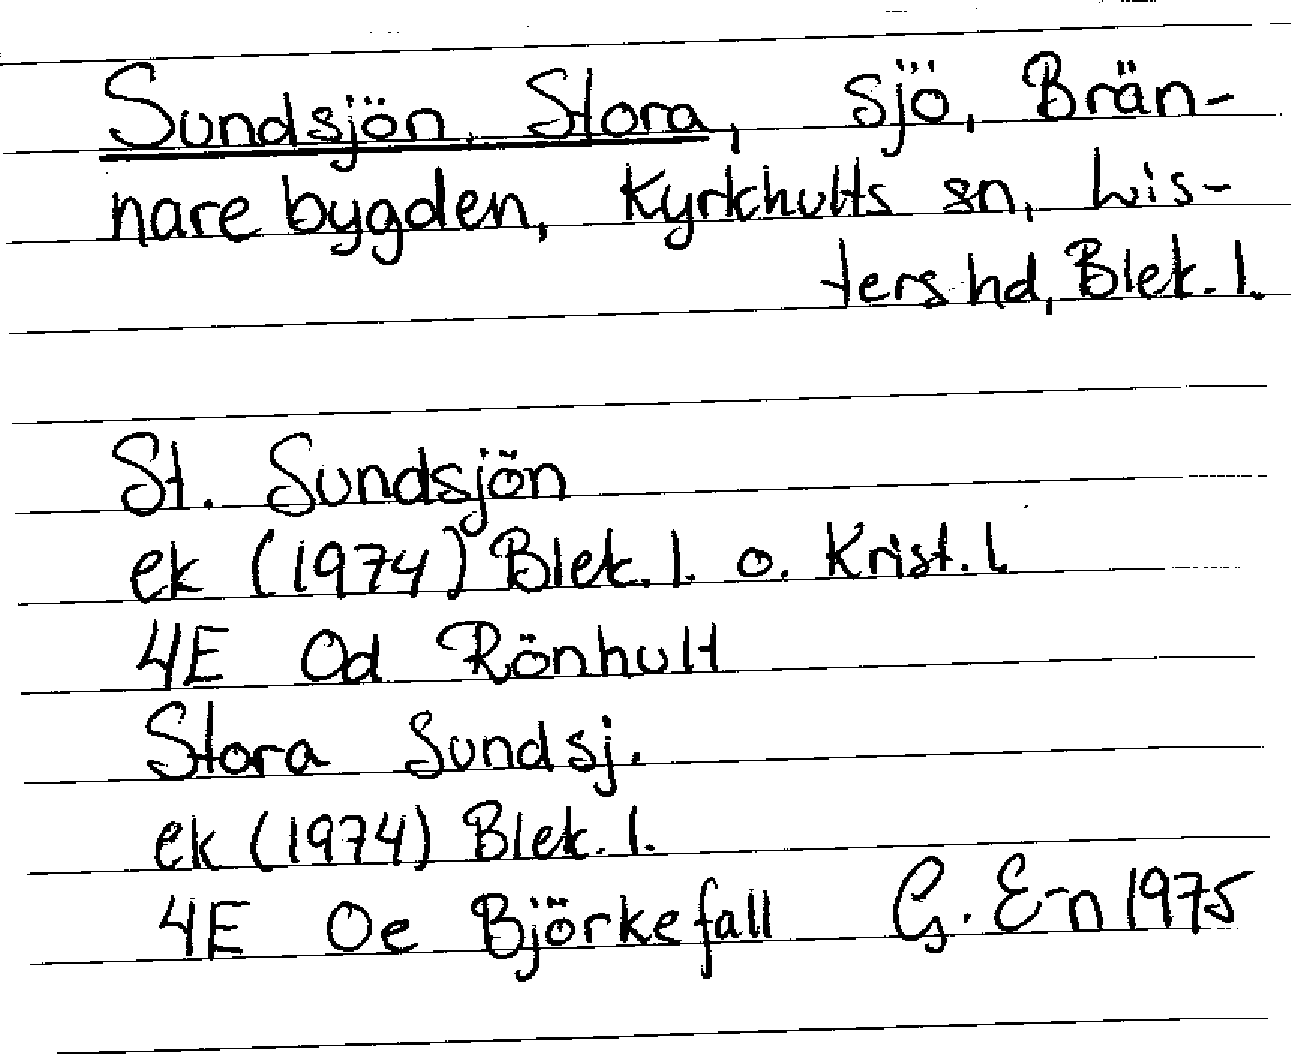 Sundsjön, Stora, sjö, Brän-
nare bygden, Kyrkhults sn, Lis-
ters hd, Blek. l.
St. Sundsjön
ek (1974) Blek. l. o. Krist. l.
4E Od Rönhult
Stora Sundsj.
ek (1974) Blek. l.
4E Oe Björkefall G. E-n 1975